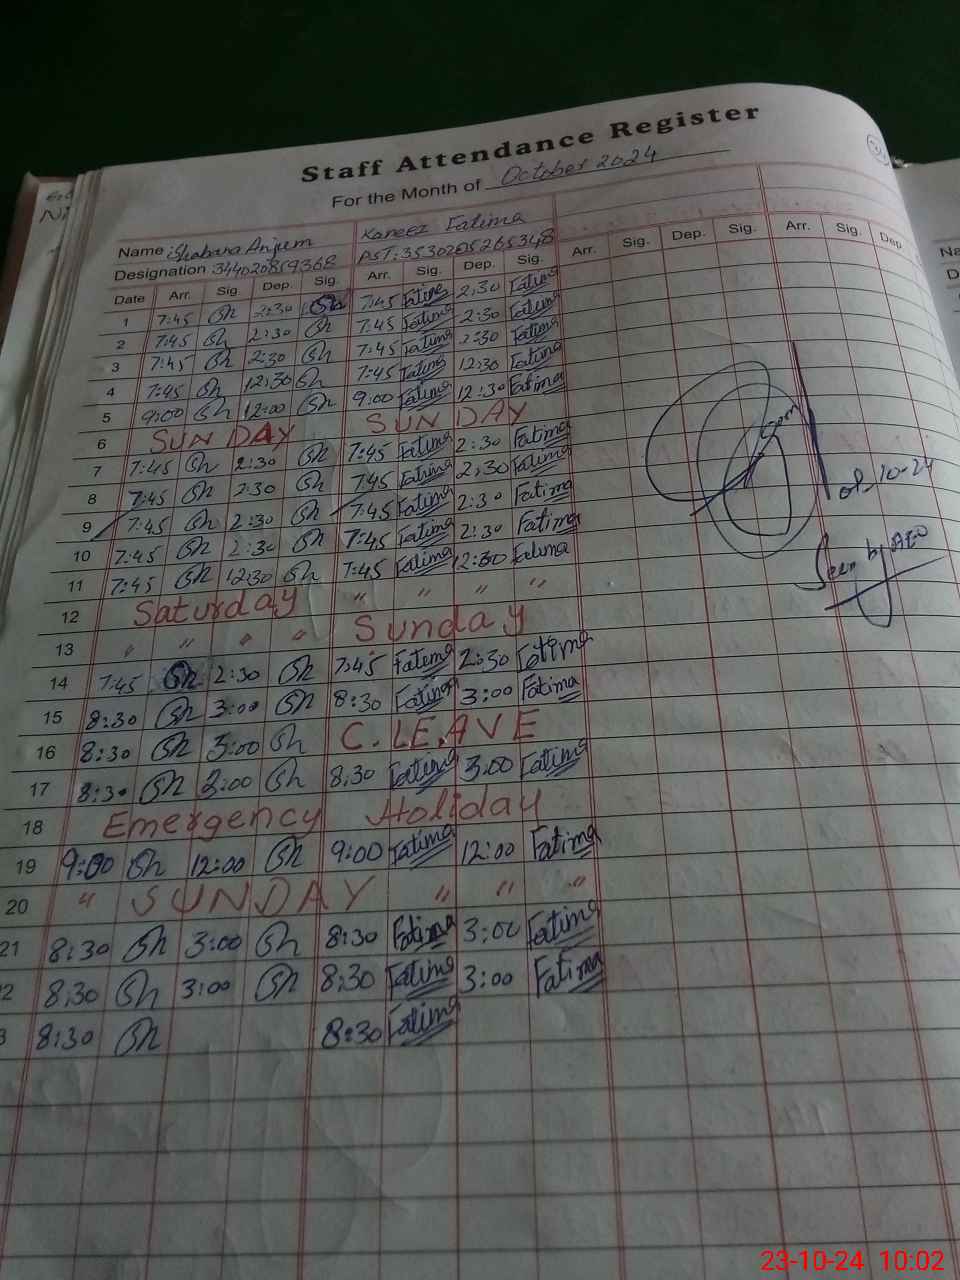 Staff Attendance Register
For the Month of October 2024
Name Shabana Anjum Kaneez Fatima
Designation 344020859368 PST:3530205265348
Date Arr. Sig. Dep. Sig. Arr. Sig. Dep. Sig. Arr. Sig. Dep. Sig. Arr. Sig. Dep
1 7:45 Sh 2:30 Sh 7:45 Fatima 2:30 Fatima
2 7:45 Sh 2:30 Sh 7:45 Fatima 2:30 Fatima
3 7:45 Sh 2:30 Sh 7:45 Fatima 2:30 Fatima
4 7:45 Sh 12:30 Sh 7:45 Fatima 12:30 Fatima
5 9:00 Sh 12:00 Sh 9:00 Fatima 12:30 Fatima
6 SUNDAY SUNDAY
7 7:45 Sh 2:30 Sh 7:45 Fatima 2:30 Fatima
8 7:45 Sh 2:30 Sh 7:45 Fatima 2:30 Fatima
9 7:45 Sh 2:30 Sh 7:45 Fatima 2:30 Fatima
10 7:45 Sh 2:30 Sh 7:45 Fatima 2:30 Fatima
11 7:45 Sh 12:30 Sh 7:45 Fatima 12:30 Fatima
12 Saturday " " " "
13 " " " " Sunday
14 7:45 Sh 2:30 Sh 7:45 Fatima 2:30 Fatima
15 8:30 Sh 3:00 Sh 8:30 Fatima 3:00 Fatima
16 8:30 Sh 3:00 Sh C.LEAVE
17 8:30 Sh 3:00 Sh 8:30 Fatima 3:00 Fatima
18 Emergency Holiday
19 9:00 Sh 12:00 Sh 9:00 Fatima 12:00 Fatima
20 " SUNDAY " " "
21 8:30 Sh 3:00 Sh 8:30 Fatima 3:00 Fatima
2 8:30 Sh 3:00 Sh 8:30 Fatima 3:00 Fatima
3 8:30 Sh 8:30 Fatima
10-24
Seen by AEO
23-10-24 10:02